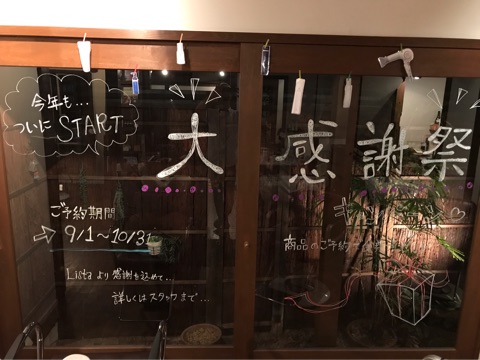 今年も...
ついに START
大感謝祭
ご予約期間
9/1〜10/31
商品のご予約
Listaより感謝を込めて...
詳しくはスタッフまで...